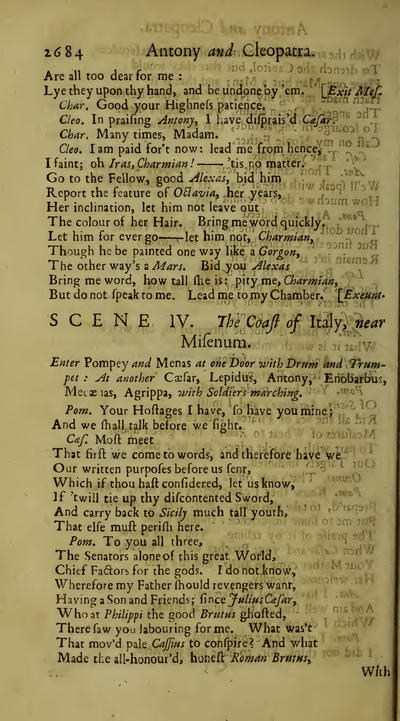 2684 Antony and Cleopatra.
Are all too dear for me :
Lye they upon thy hand, and be undone by 'em. [Exit Mes.
Char. Good your Highneſs patience.
Cleo. In praiſing Antony, I have diſprais'd Cæſar.
Char. Many times, Madam.
Cleo. I am paid for't now: lead me from hence,
I faint; oh Iras, Charmian!—— 'tis no matter.
Go to the Fellow, good Alexas, bid him
Report the feature of Octavia, her years,
Her inclination, let him not leave out
The colour of her Hair. Bring me word quickly.
Let him for ever go——let him not, Charmian,
Though he be painted one way like a Gorgon,
The other way's a Mars. Bid you Alexas
Bring me word, how tall ſhe is: pity me, Charmian,
But do not ſpeak to me. Lead me to my Chamber. [Exeunt.
SCENE IV. The Coaſt of Italy, near
Miſenum.
Enter Pompey and Menas at one Door with Drum and Trum-
pet : At another Cæſar, Lepidus, Antony, Enobarbus,
Mecænas, Agrippa, with Soldiers marching.
Pom. Your Hoſtages I have, ſo have you mine;
And we ſhall talk before we fight.
Cæſ. Moſt meet
That firſt we come to words, and therefore have we
Our written purpoſes before us ſent,
Which if thou haſt conſidered, let us know,
If 'twill tie up thy diſcontented Sword,
And carry back to Sicily much tall youth,
That elſe muſt periſh here.
Pom. To you all three,
The Senators alone of this great World,
Chief Factors for the gods. I do not know,
Wherefore my Father ſhould revengers want,
Having a Son and Friends; ſince Julius Cæſar,
Who at Philippi the good Brutus ghoſted,
There ſaw you labouring for me. What was't
That mov'd pale Caſſius to conſpire? And what
Made the all-honour'd, honeſt Roman Brutus,
With